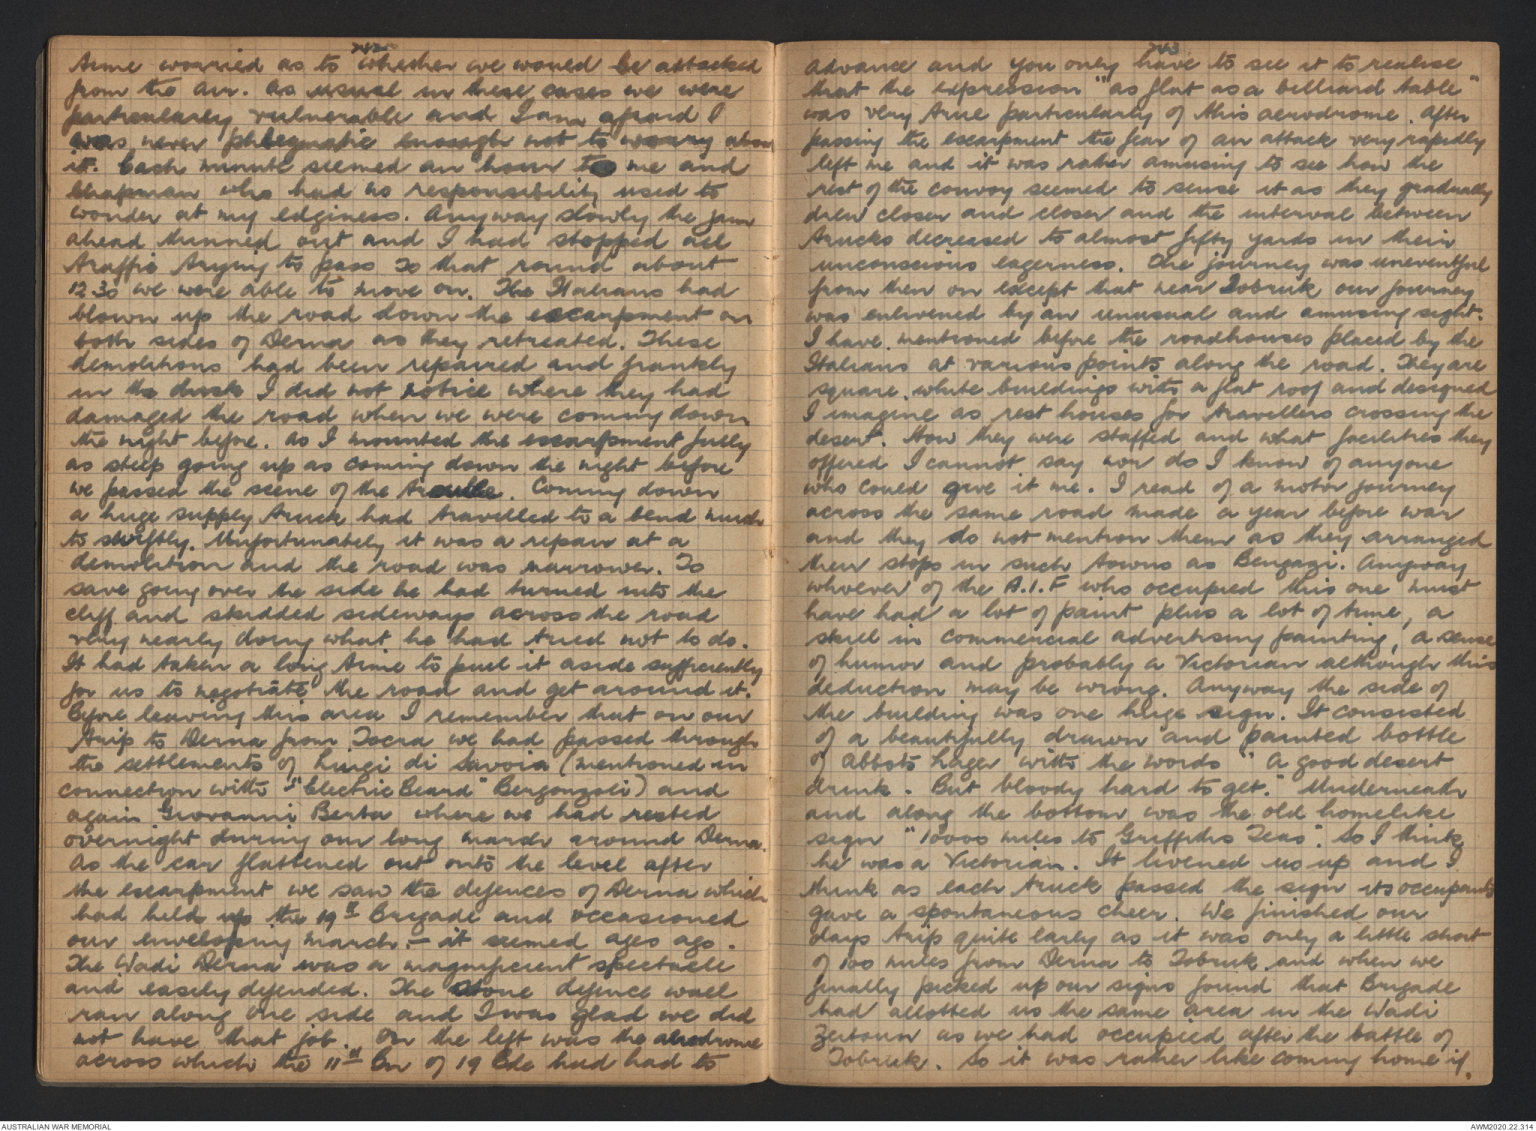 242
time worried as to whether we would be attacked
from the air. As usual in these cases we were
particularly vulnerable and I am afraid I
was never phlegmatic enough not to worry about
it. Each minute seemed an hour to me and
Chapman who had no responsibility used to
wonder at my edginess. Anyway slowly the jam
ahead thinned out and I had stopped all
traffic trying to pass so that round about
12.30 we were able to move on. The Italians had
blown up the road down the escarpment on
both sides of Derna as they retreated. These
demolitions had been repaired and frankly
in the dusk I did not notice where they had
damaged the road when we were coming down
the night before. As I mounted the escarpment fully
as steep going up as coming down the night before
we passed the scene of the trouble. Coming down
a huge supply truck had travelled to a bend much
to swiftly. Unfortunately it was a repair at a
demolition and the road was narrower. To
save going over the side he had turned into the
cliff and skidded sideways across the road
very nearly doing what he had tried not to do.
It had taken a long time to pull it aside sufficiently
for us to negotiate the road and get around it.
Before leaving this area I remember that on our
trip to Derna from Tocra we had passed through
the settlements of Luigi di Savoia (mentioned in
connection with "Electric Beard" Bergonzoli) and
again Giovanni Berta where we had rested
overnight during our long march around Derna.
As the car flattened out onto the level after
the escarpment we saw the defences of Derna which
had held up the 19th Brigade and occasioned
our enveloping march - it seemed ages ago.
The Wadi Derna was a magnificent spectacle
and easily defended. The stone defence wall
ran along one side and I was glad we did
not have that job. On the left was the aerodrome
across which the 11th Bn of 19 Bde had had to
243
advance and you only have to see it to realise
that the expression "as flat as a billiard table"
was very true particularly of this aerodrome. After
passing the escarpment the fear of an attack very rapidly
left me and it was rather amusing to see how the
rest of the convoy seemed to sense it as they gradually
drew closer and closer and the interval between
trucks decreased to almost fifty yards in their
unconscious eagerness. The journey was uneventful
from then on except that near Tobruk our journey
was enlivened by an unusual and amusing sight.
I have mentioned before the roadhouses placed by the
Italians at various points along the road. They are
square white buildings with a flat roof and designed
I imagine as rest houses for travellers crossing the
desert. How they were staffed and what facilities they
offered I cannot say nor do I know of anyone
who could give it me. I read of a motor journey
across the same road made a year before war
and they do not mention them as they arranged
their stops in such towns as Bengazi. Anyway
whoever of the A.I.F who occupied this one must
have had a lot of paint plus a lot of time, a
skill in commercial advertising painting, a sense
of humor and probably a Victorian although this
deduction may be wrong. Anyway the side of
the building was one huge sign. It consisted
of a beautifully drawn and painted bottle
of Abbots Lager with the words "A good desert
drink. But bloody hard to get." Underneath
and along the bottom was the old homelike
sign "10000 miles to Griffiths Teas". So I think
he was a Victorian. It livened us up and I
think as each truck passed the sign its occupants
gave a spontaneous cheer. We finished our
days trip quite early as it was only a little short
of 100 miles from Derna to Tobruk and when we
finally picked up our signs found that Brigade
had allotted us the same area in the Wadi
Zeitoun as we had occupied after the battle of
Tobruk. So it was rather like coming home if.
AUSTRALIAN WAR MEMORIAL
AWM2020.22.314